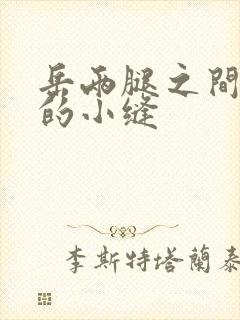 岳兩腿之間
的小縫
李斯特塔蘭泰